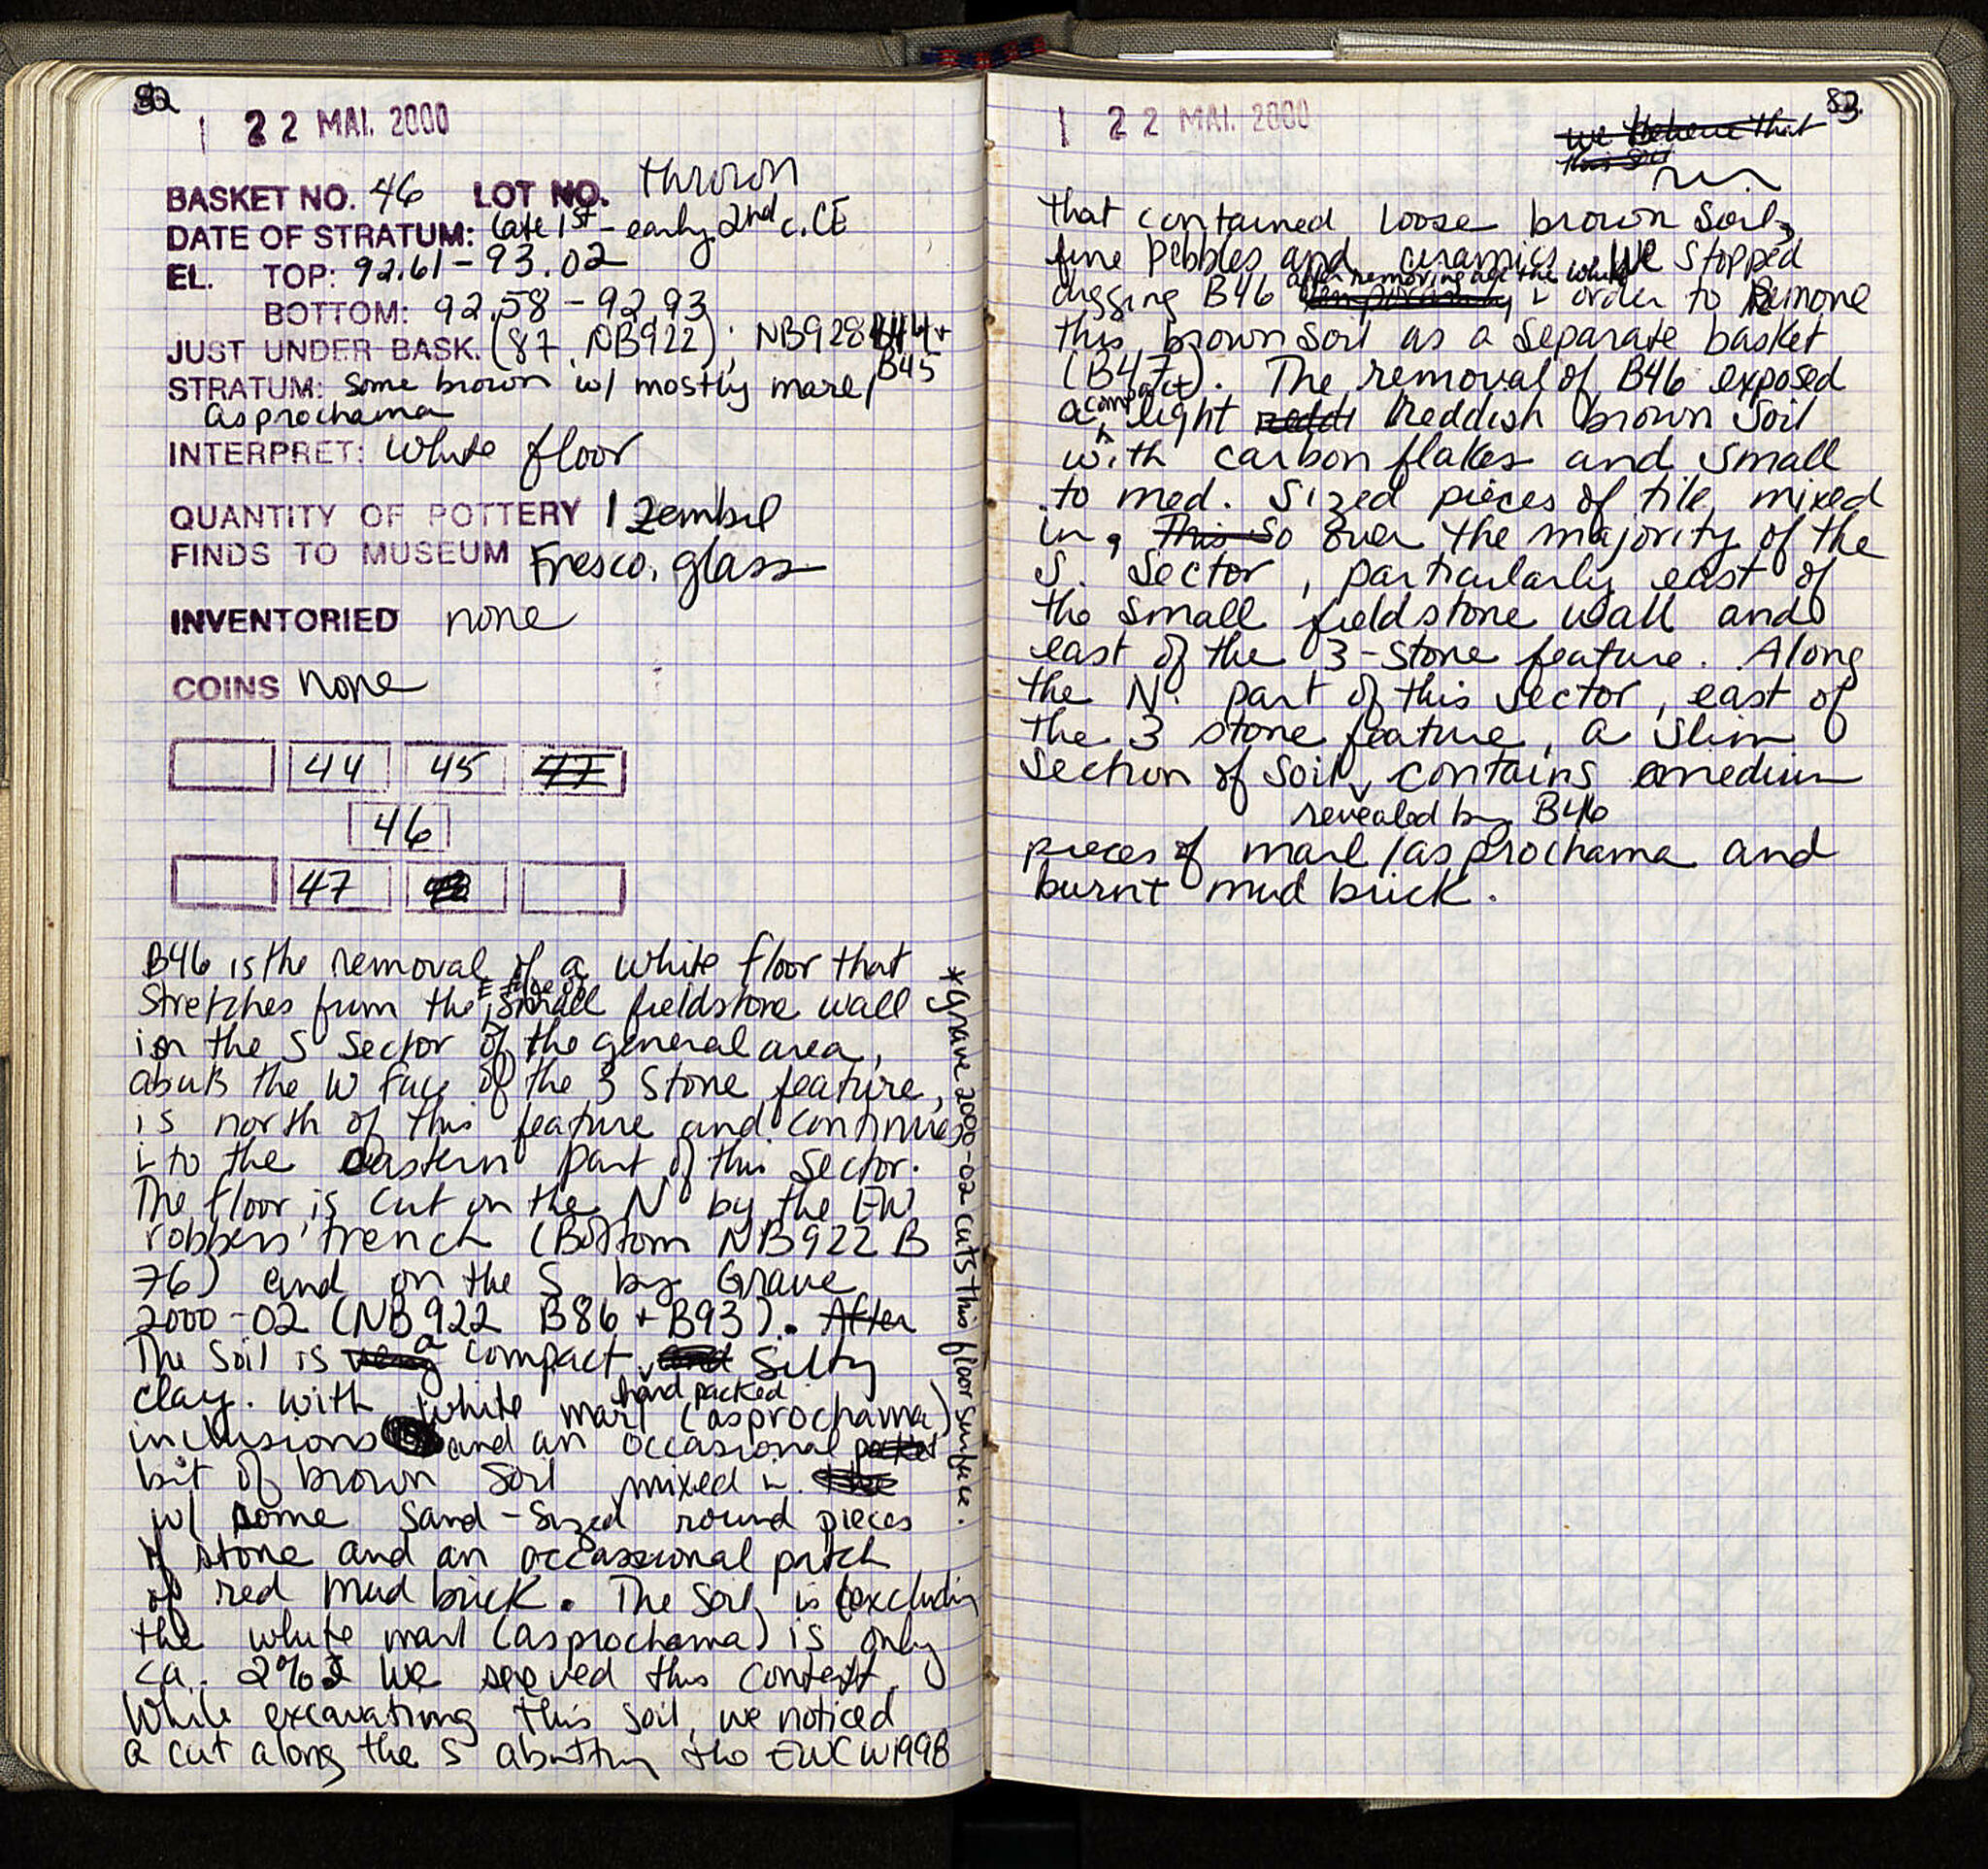 82
1 22 MAI. 2000
BASKET NO. 46 LOT NO. thrown
DATE OF STRATUM: late 1st - early 2nd c. CE
EL. TOP: 92.61 - 93.02
BOTTOM: 92.58 - 92.93
JUST UNDER BASK. (87, NB922); NB928 B44 +
B45
STRATUM: Some brown w/ mostly marl/
asprochama
INTERPRET: White floor
QUANTITY OF POTTERY 1 Zembil
FINDS TO MUSEUM Fresco, glass
INVENTORIED none
COINS none
44 45 47
46
47
B46 is the removal of a white floor that
stretches from the E edge of small fieldstone wall
in the S Sector of the general area,
abuts the W face of the 3 stone feature,
is north of this feature and continues
into the eastern part of this sector.
The floor is cut on the N by the EW
robbers' trench (Bottom NB922 B
76) and on the S by Grave
2000-02 (NB922 B86 + B93). After
The soil is very a compact, and silty
hard packed
clay. with white marl (asprochama)
inclusions and an occasional pocket
bit of brown soil mixed in. the
w/ some sand-sized round pieces
of stone and an occassional patch
of red mud brick. The soil is (excluding
the white marl (asprochama) is only
ca. 2% I we seived this context.
While excavating this soil, we noticed
a cut along the S abutting the EWCW1998
*Grave 2000-02 cuts this floor surface.
83
1 22 MAI. 2000
we believe that
this soil
that contained loose brown soil,
fine pebbles and ceramics. We stopped
after removing all the white
digging B46 temporarily in order to remove
this brown soil as a separate basket
(B47). The removal of B46 exposed
a compact light reddi Reddish brown soil
with carbon flakes and small
to med. sized pieces of tile mixed
in, This So over the majority of the
S. Sector, particularly east of
the small fieldstone wall and
east of the 3-stone feature. Along
the N. part of this sector, east of
the 3 stone feature, a slim
section of soil, contains medium
revealed by B46
pieces of marl/asprochama and
burnt mud brick.